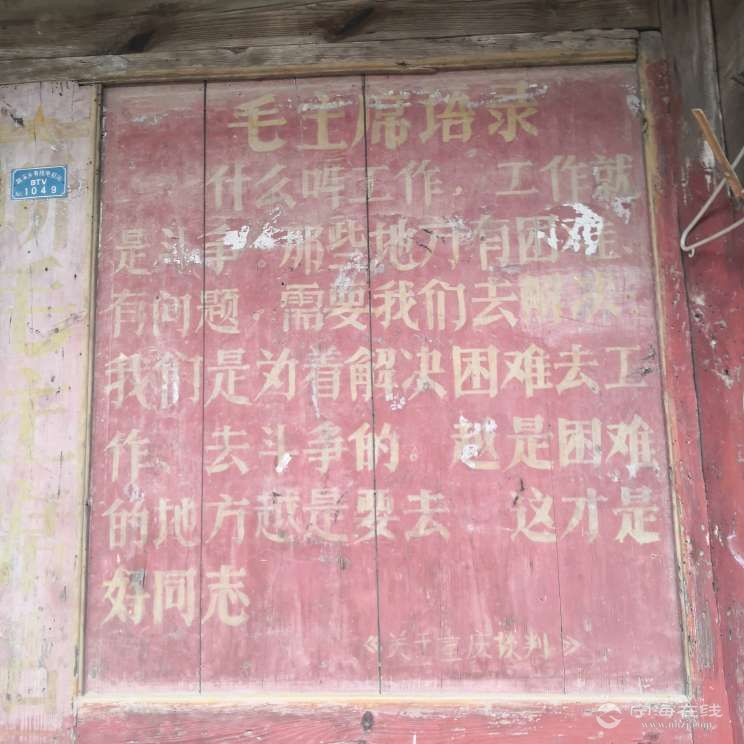 毛主席语录
什么叫工作，工作就
是斗争。那些地方有困难、
有问题，需要我们去解决。
我们是为着解决困难去工
作、去斗争的。越是困难
的地方越是要去 这才是
好同志
《关于重庆谈判》
BTV
1049
毛主席
宁海在线